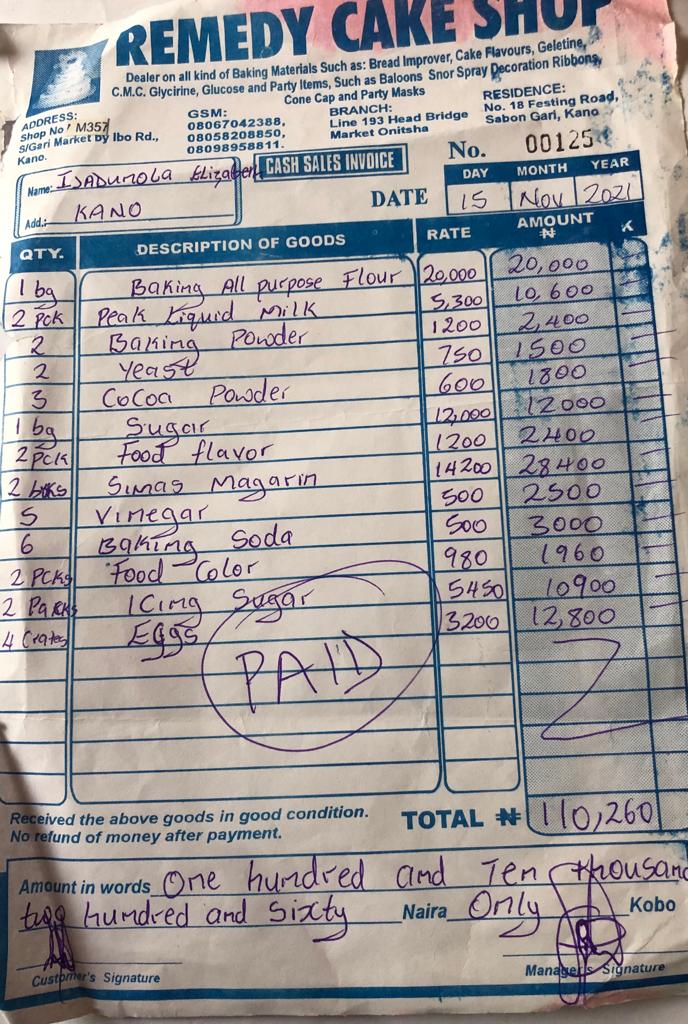 REMEDY CAKE SHOP
Dealer on all kind of Baking Materials Such as: Bread Improver, Cake Flavours, Geletine,
C.M.C. Glycirine, Glucose and Party Items, Such as Baloons Snor Spray Decoration Ribbons,
Cone Cap and Party Masks
ADDRESS:
Shop No M357
S/Gari Market by Ibo Rd.,
Kano.
GSM:
08067042388,
08058208850,
08098958811.
BRANCH:
Line 193 Head Bridge
Market Onitsha
RESIDENCE:
No. 18 Festing Road,
Sabon Gari, Kano
CASH SALES INVOICE
No. 00125
Name: Elizabeth
Add.: KANO
DATE
DAY MONTH YEAR
15 Nov 2021
QTY. DESCRIPTION OF GOODS RATE AMOUNT ₦ K
1 bg Baking All purpose Flour 20,000 20,000
2 Pck Peak Liquid Milk 5,300 10,600
2 Baking Powder 1200 2,400
2 Yeast 750 1500
3 CoCoa Powder 600 1800
1 bg Sugar 12,000 12000
2 Pck Food flavor 1200 2400
2 Simas Magarin 14200 28400
5 Vinegar 500 2500
6 Baking Soda 500 3000
2 PCKs Food Color 980 1960
2 Packs Icing Sugar 5450 10900
4 Crates Eggs 3200 12,800
PAID
Received the above goods in good condition.
No refund of money after payment.
TOTAL ₦ 110,260
Amount in words One hundred and Ten thousand
two hundred and Sixty Naira Only Kobo
Customer's Signature
Manager's Signature